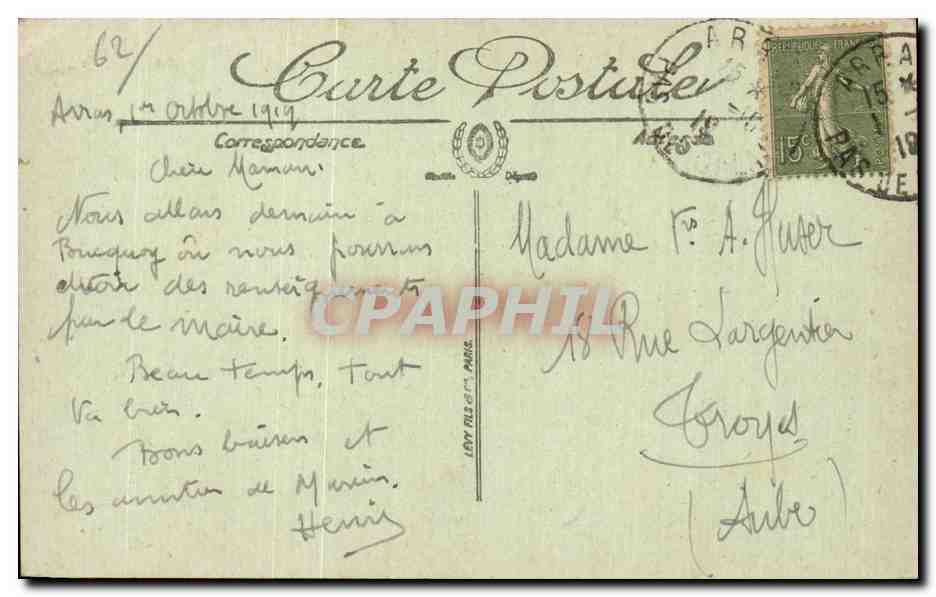 62/
Carte Postale
Arras, 1er Octobre 1919
Correspondance
Adresse
Chère Maman.
Nous allons demain à
Bucquoy où nous pourrons
avoir des renseignements
par le maire.
Beau temps. Tout
va bien.
Bons baisers et
les amitiés de
Henri
LÉVY FILS & Cie, PARIS.
Madame Frs A. Huser
18 Rue Largentier
Troyes
(Aube)
REPUBLIQUE FRANC
15c
ARRAS
PAS DE
CPAPHIL